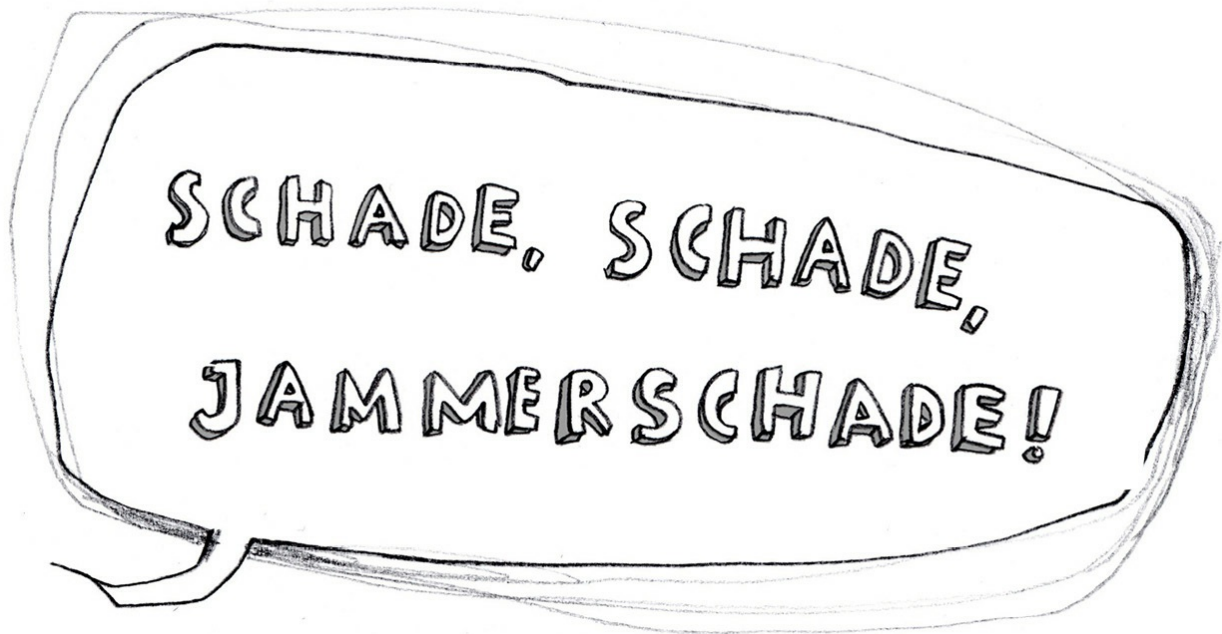 SCHADE, SCHADE,
JAMMERSCHADE!